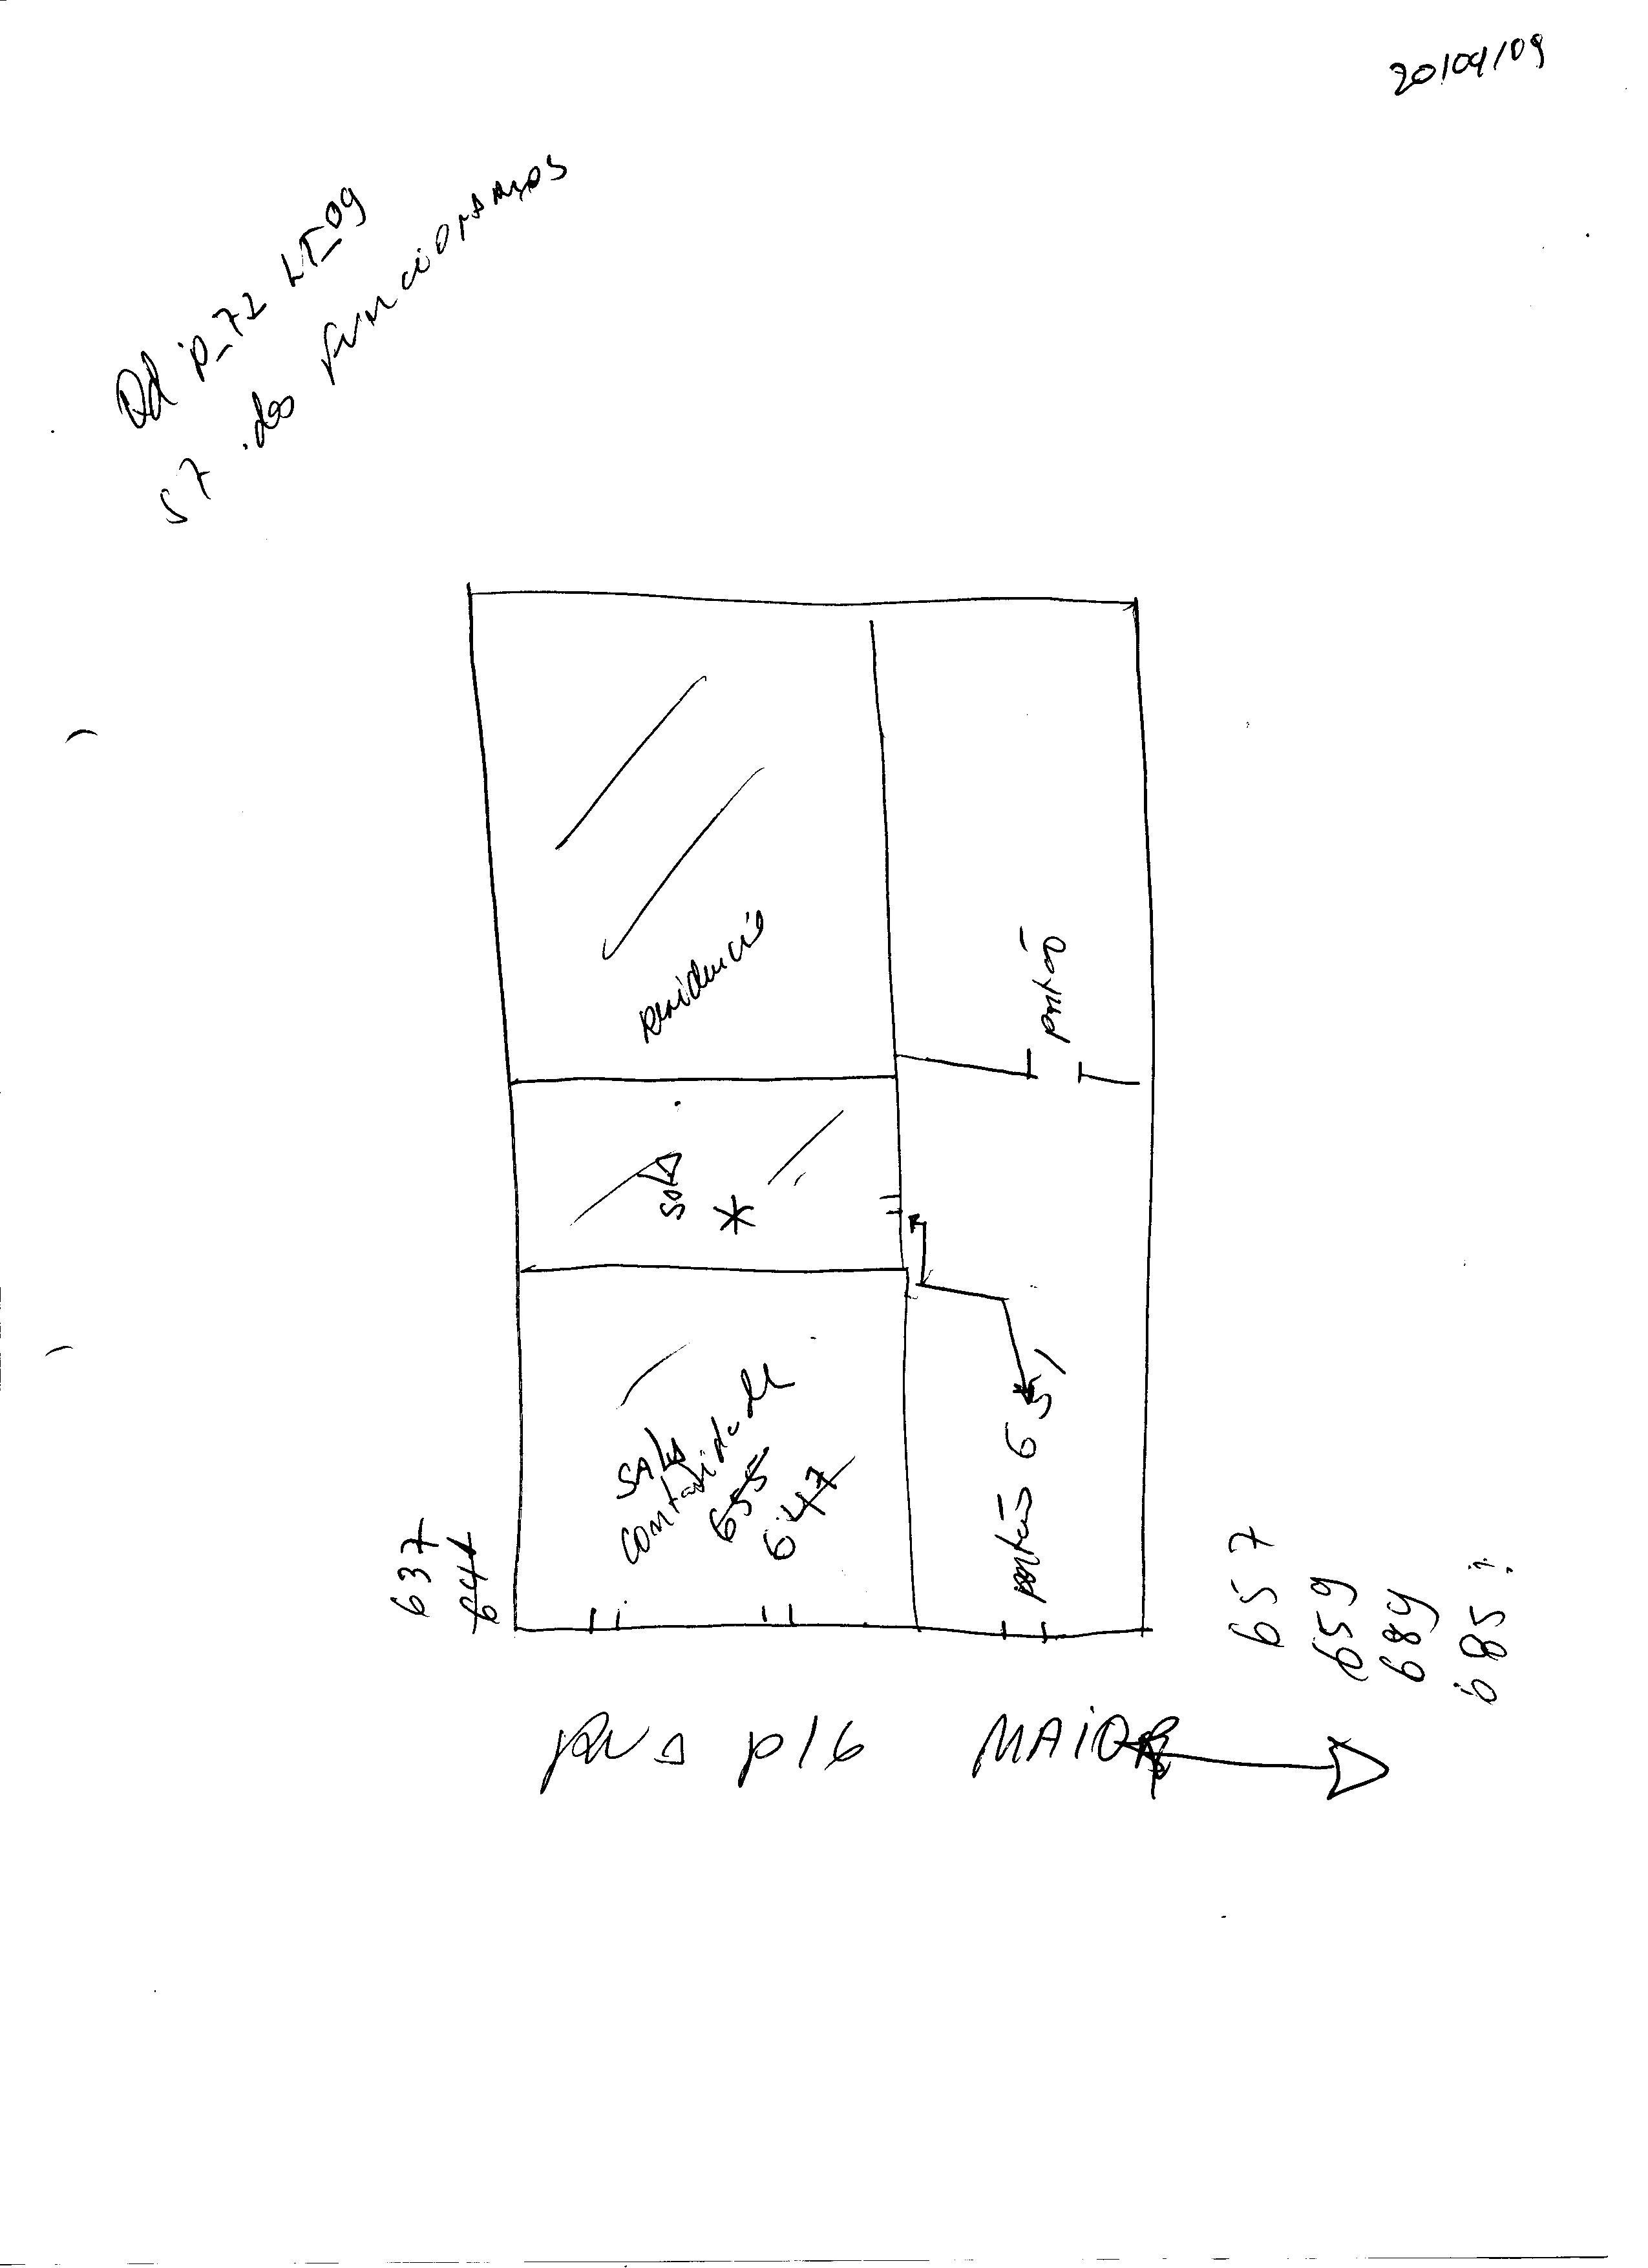 20/04/09
Qd P_72 LT_09
ST. dos funcionarios
residencia
portão
*
SALA
contabilidade
655
647
portão 651
637
641
657
659
689
685
Rua P16 MAIOR